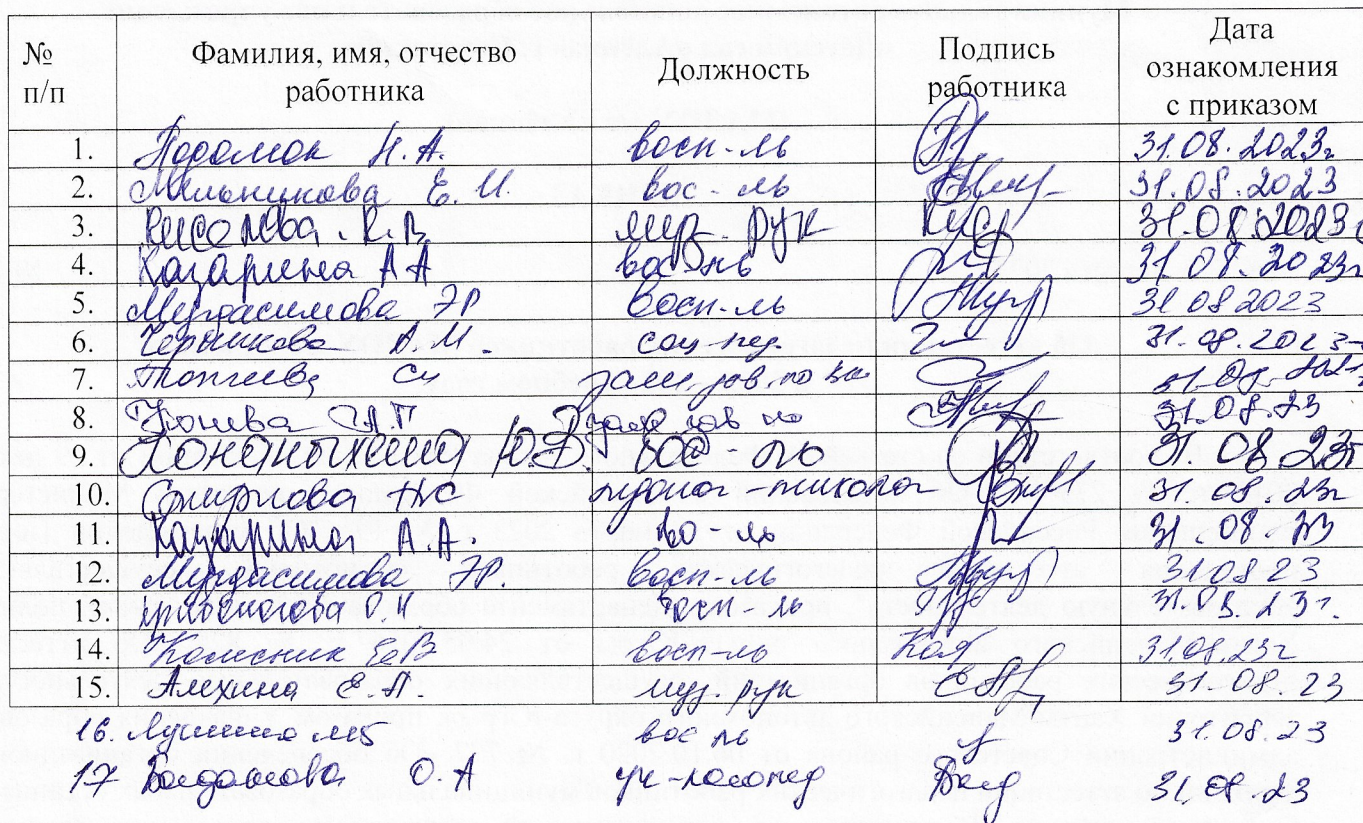 № п/п Фамилия, имя, отчество работника Должность Подпись работника Дата ознакомления с приказом
1. Н.А. восп-ль 31.08.2023г
2. Мельникова Е.И. вос-ль 31.08.2023
3. Киселева К.В муз. рук 31.08.2023г
4. Казарина А А вос-ль 31.08.2023г
5. Мирдасимова ЭР восп-ль 31 08 2023
6. соц-пед. 31.08.2023г
7. зам. зав. по
8. зам зав по 31.08.23
9. Ю.В. вос-ль 31.08.23г
10. Смирнова НС педагог-психолог 31.08.23г
11. Казарина А.А. во-ль 31.08.23
12. Мирдасимова ЭР. восп-ль 31 08 23
13. О.Н восп-ль 31.08.23г.
14. Колесник Е.В восп-ль 31.08.23г
15. Алехина Е.П муз.рук 31.08.23
16. вос ль 31.08.23
17 Богдашова О.А уч-логопед 31.08.23